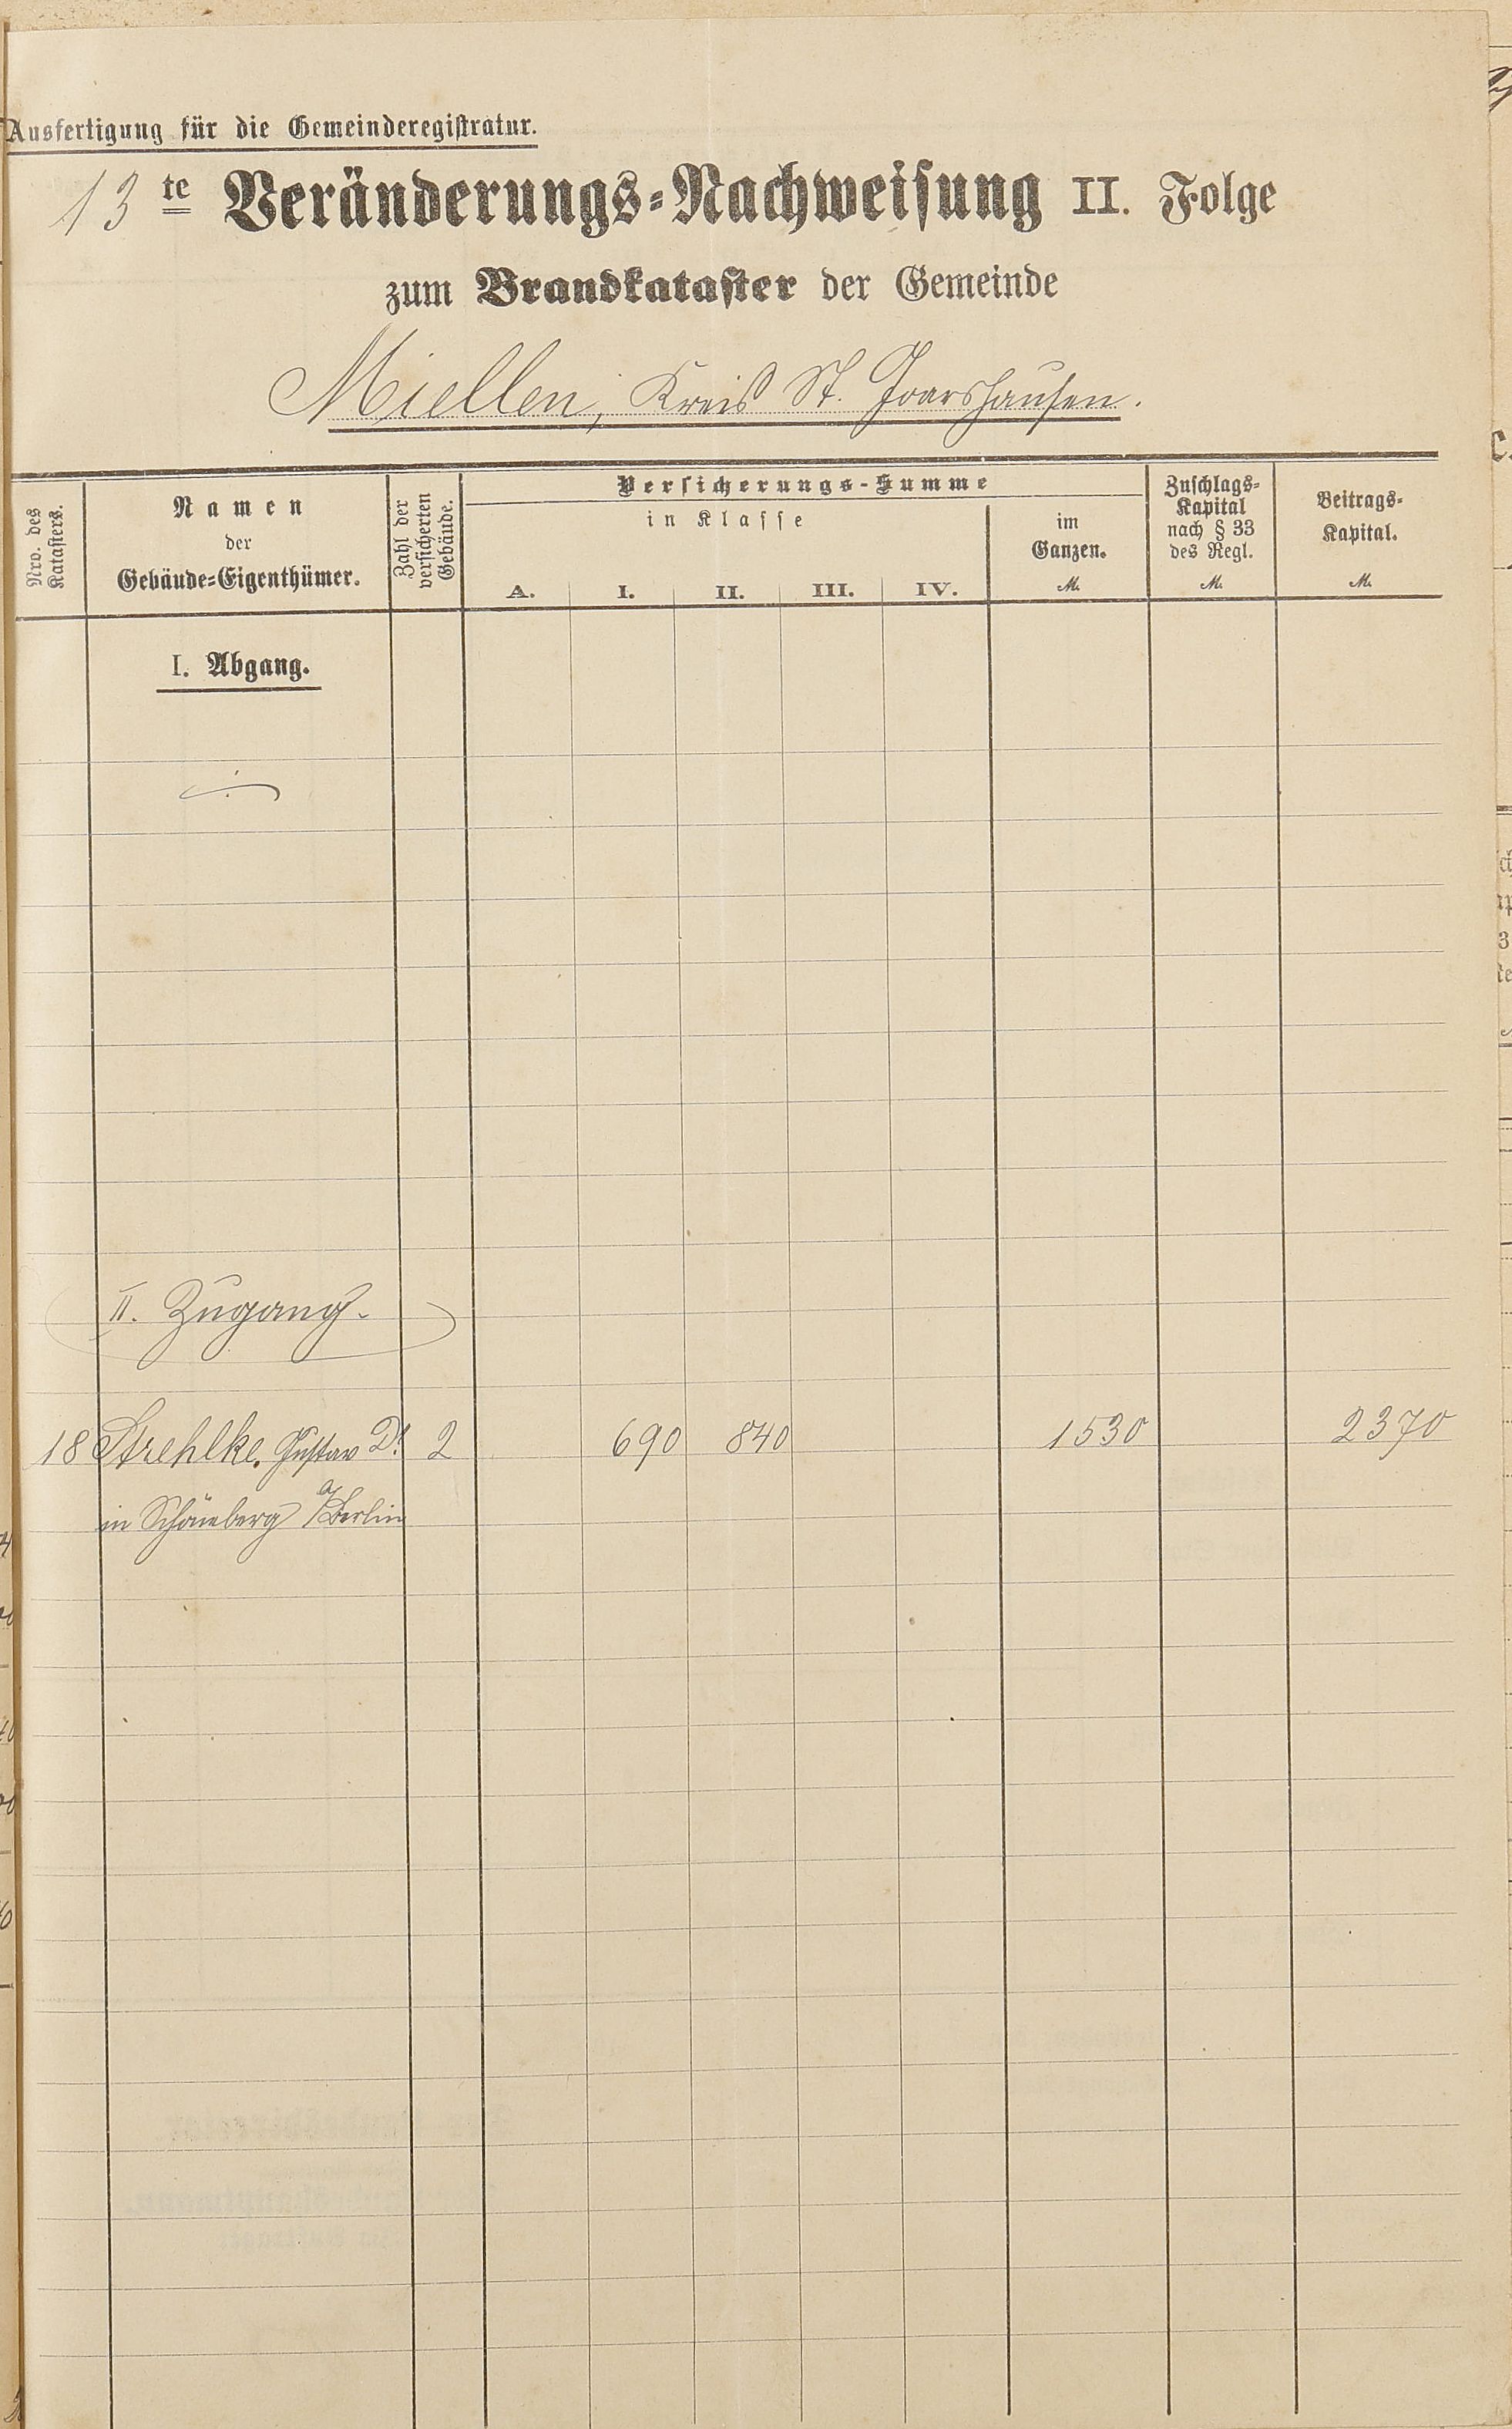 Ausfertigung für die Gemeinderegistratur.
13te Veränderungs-Nachweisung II. Folge
zum Brandkataster der Gemeinde
Miellen, Kreis St. Goarshausen.
Nro. des Katasters.
Namen
der
Gebäude-Eigenthümer.
Zahl der versicherten Gebäude.
Versicherungs-Summe
in Klasse
A. I. II. III. IV.
im
Ganzen.
M.
Zuschlags-
Kapital
nach § 33
des Regl.
M.
Beitrags-
Kapital.
M.
I. Abgang.
II. Zugang.
18 Strehlke, Gustav Dr. 2 690 840 1530 2370
in Schöneberg a/Berlin